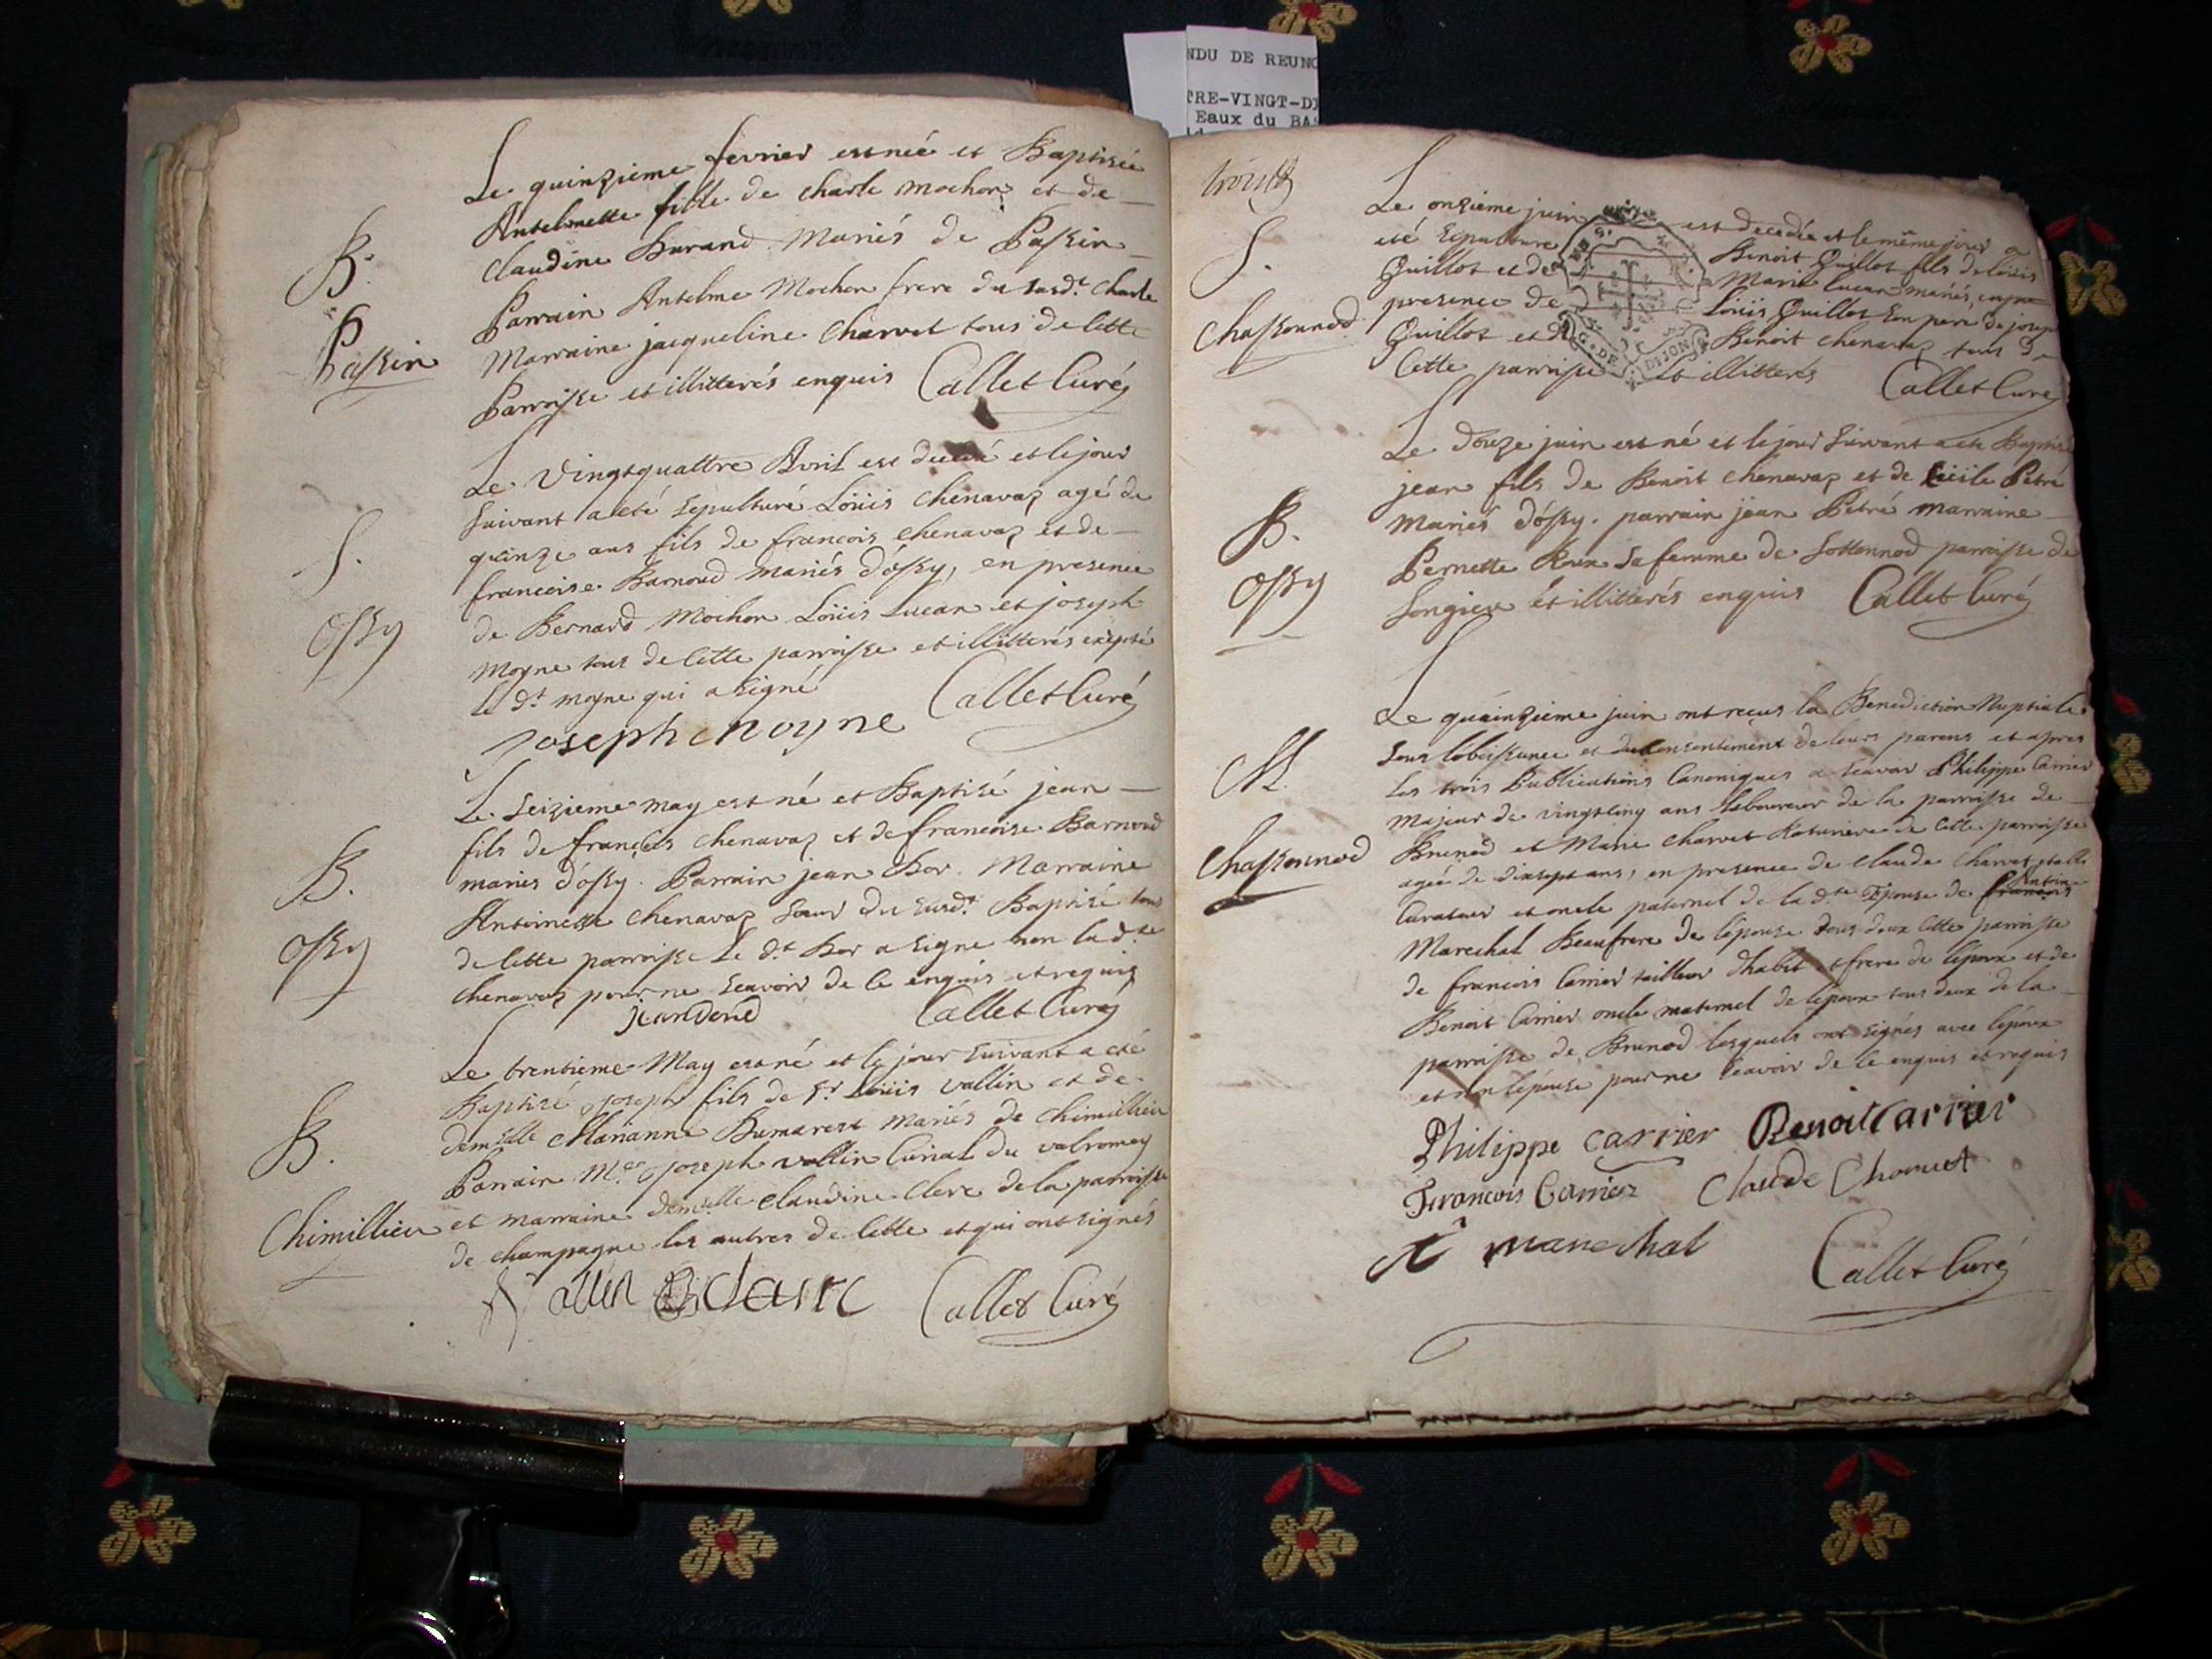 NDU DE REUNO
TRE-VINGT-DI
Eaux du BAS
Le quinzieme fevrier est née et Baptisée
Antelmette fille de charle mochon et de
claudine Durand Mariés de Passin
B.
Passin
Parrain Antelme Mochon frere du susd.t charle
Marraine jacqueline charvet tous de Cette
Parroisse et illitterés enquis Callet Curé
Le vingtquattre Avril est decedé et le jour
suivant a été sepulturé Loüis chenavaz agé de
quinze ans fils de francois chenavaz et de
S.
ossy
francoise Barnoud mariés d'óssy, en presence
de Bernard Mochon Loüis Lucan et joseph
Moyne tous de Cette parroisse et illitterés excepté
le d.t moyne qui a signé Callet Curé
joseph moyne
Le seizieme may est né et Baptisé jean
fils de françois chenavaz et de francoise Barnoud
B.
ossy
mariés d'óssy. Parrain jean Bor. Marraine
Antoinette chenavaz soeur du susd.t Baptisé tous
de Cette parroisse Le d.t Bor a signé non la d.te
chenavaz pour ne scavoir de ce enquis et requis
Callet Curé
Le trentieme May est né et le jour suivant a été
Baptisé joseph fils de S.r Loüis vallin et de
B.
Chimillieu
dem.elle Marianne Dumarest mariés de chimillieu
Parrain M.re joseph vallin Curial du valromey
et marraine dem.elle claudine Clerc de la parroisse
de champagne les autres de Cette et qui ont signés
Callet Curé
trois
Le onzieme juin est decedé et le même jour a
S.
chassonnod
été sepulturé Benoit Quillot fils de Loüis
Quillot et de Marie Lucan mariés, en
presence de Loüis Quillot son pere de joseph
Quillot et de Benoit chenavaz tous de
Cette parroisse et illitterés Callet Curé
DIJON
Le Douze juin est né et le jour suivant a eté Baptisé
jean fils de Benoit chenavaz et de Cecile Petré
B.
ossy
Mariés d'óssy. parrain jean Petré marraine
Pernette Roux sa femme de sottonnod parroisse de
songieu et illitterés enquis Callet Curé
Le quinzieme juin ont reçus la Benediction Nuptiale
sous l'obeissance et du consentement de leurs parens et apres
M.
chassonnod
les trois Publications Canoniques a scavoir Philippe Carrier
majeur de vingtcinq ans laboureur de la parroisse de
Brenod et Marie charvet Roturiere de Cette parroisse
agée de dixsept ans, en presence de claude charvet
Curateur et oncle paternel de la d.te Epouse de francois Antoine
Marechal Beaufrere de lépouse tous deux Cette parroisse
de francois Carrier tailleur dhabit et frere de lépoux et de
Benoit Carrier oncle maternel de lépoux tous deux de la
parroisse de Brenod lesquels ont signés avec lépoux
et non lépouse pour ne scavoir de ce enquis et requis
Philippe carrier Benoit carrier
François Carrier Claude Charvet
A marechal
Callet Curé